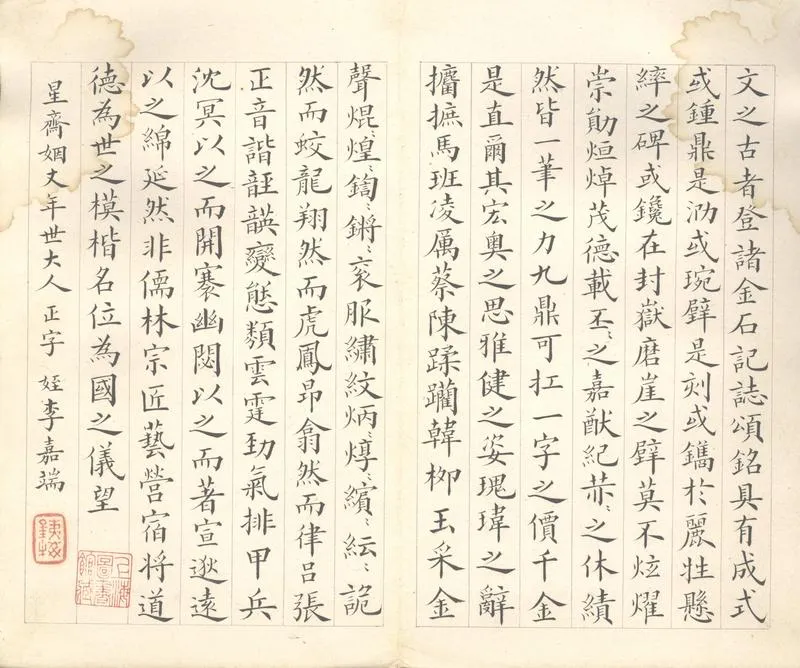 文之古者登諸金石記誌頌銘具有成式
或鍾鼎是泐或琬璧是刻或鐫於麗牲懸
繂之碑或鑱在封嶽磨崖之壁莫不炫燿
崇勛烜焯茂德載丕〻之嘉猷紀〻之休績
然皆一筆之力九鼎可扛一字之價千金
是直爾其宏奥之思雅健之姿瑰瑋之辭
攟摭馬班凌厲蔡陳蹂躪韓柳玉采金
聲焜〻煌〻鍧〻鏘〻袞服繡紋炳〻焞〻繽〻紜〻詭
然而蛟龍翔然而虎鳳昂翕然而律呂張
正音諧韺變態類雲霆勁氣排甲兵
沈冥以之而開褰幽閟以之而著宣逖遠
以之綿延然非儒林宗匠藝營宿將道
德為世之模楷名位為國之儀望
星齋姻丈年世大人 正字 姪李嘉端